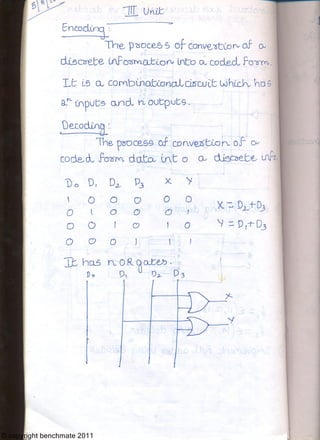 5/9/
III Unit
Encoding :
The process of convertion of a
discrete information into a coded form.
It is a combinational circuit which has
2ⁿ inputs and n outputs.
Decoding :
The process of convertion of
coded form data int o a discrete info
D₀ D₁ D₂ D₃ X Y
1 0 0 0 0 0
0 1 0 0 0 1 X = D₂+D₃
0 0 1 0 1 0 Y = D₁+D₃
0 0 0 1 1 1
It has n OR gates.
D₀ D₁ D₂ D₃
X
Y
© copyright benchmate 2011